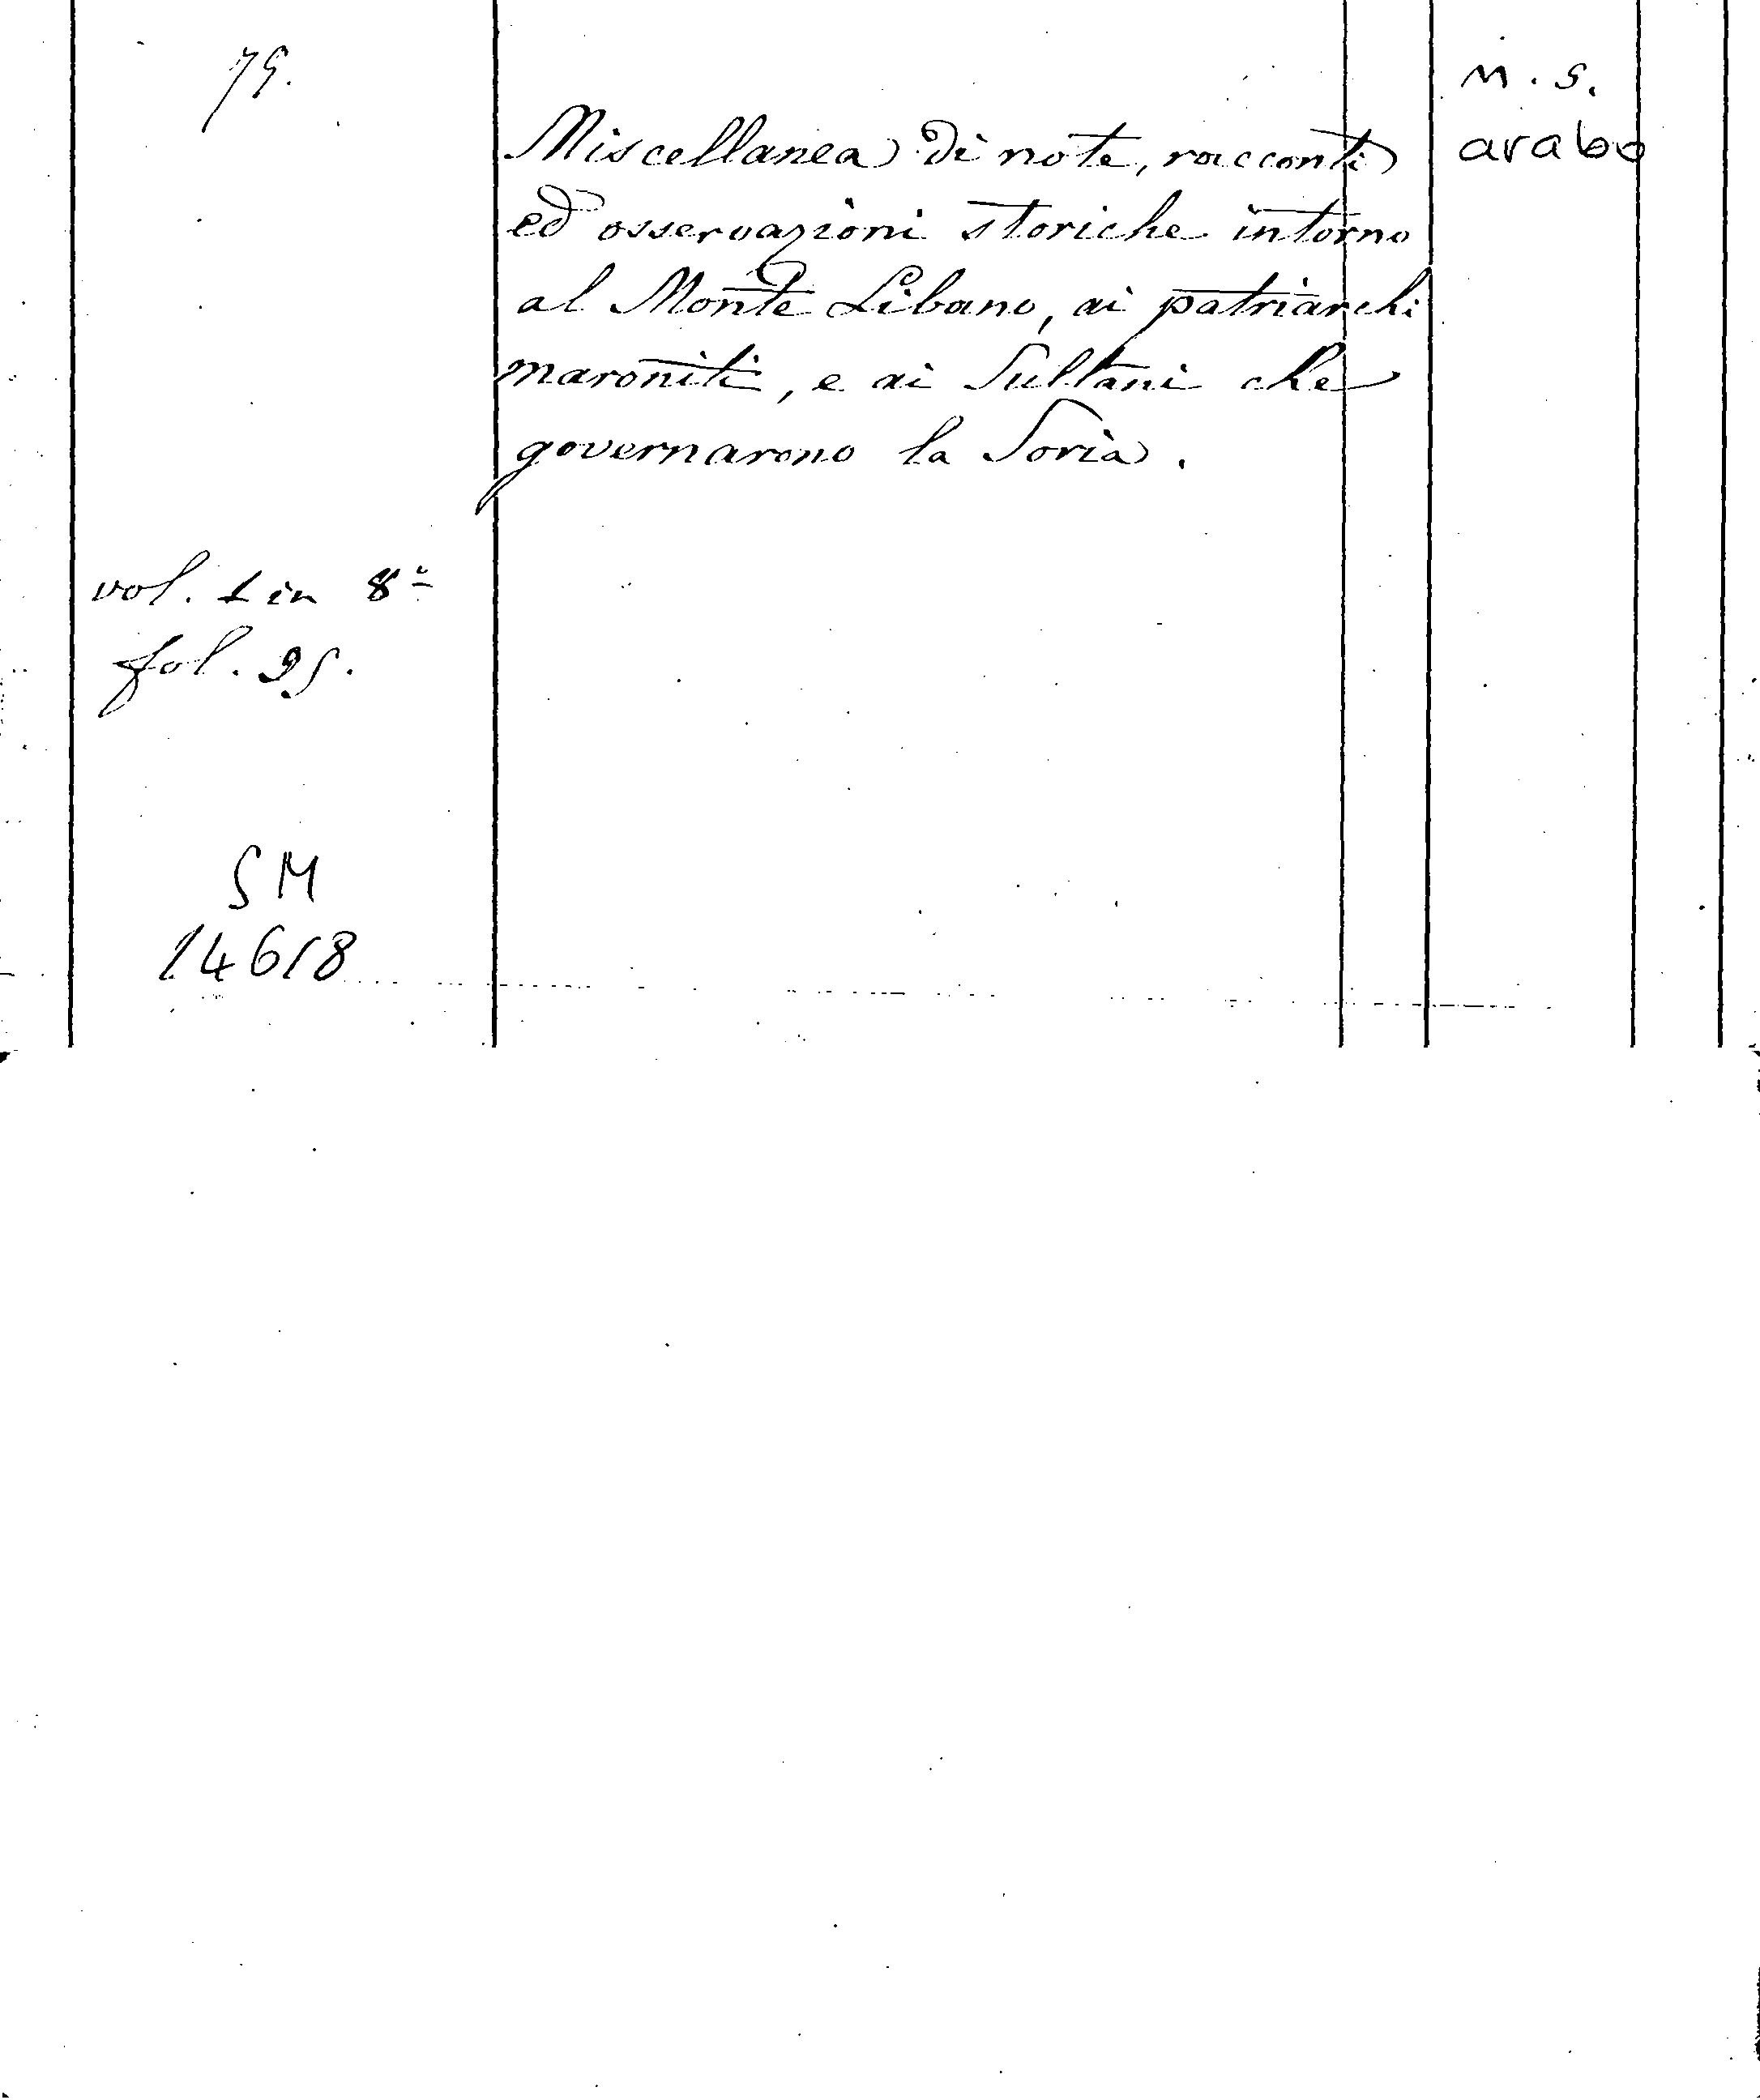 79.
m.s.
arabo
Miscellanea di note, racconti
ed osservazioni storiche intorno
al Monte Libano, ai patriarchi
maroniti, e ai Sultani che
governarono la Soria.
vol. 1 in 8º
fol. 95.
SM
14618